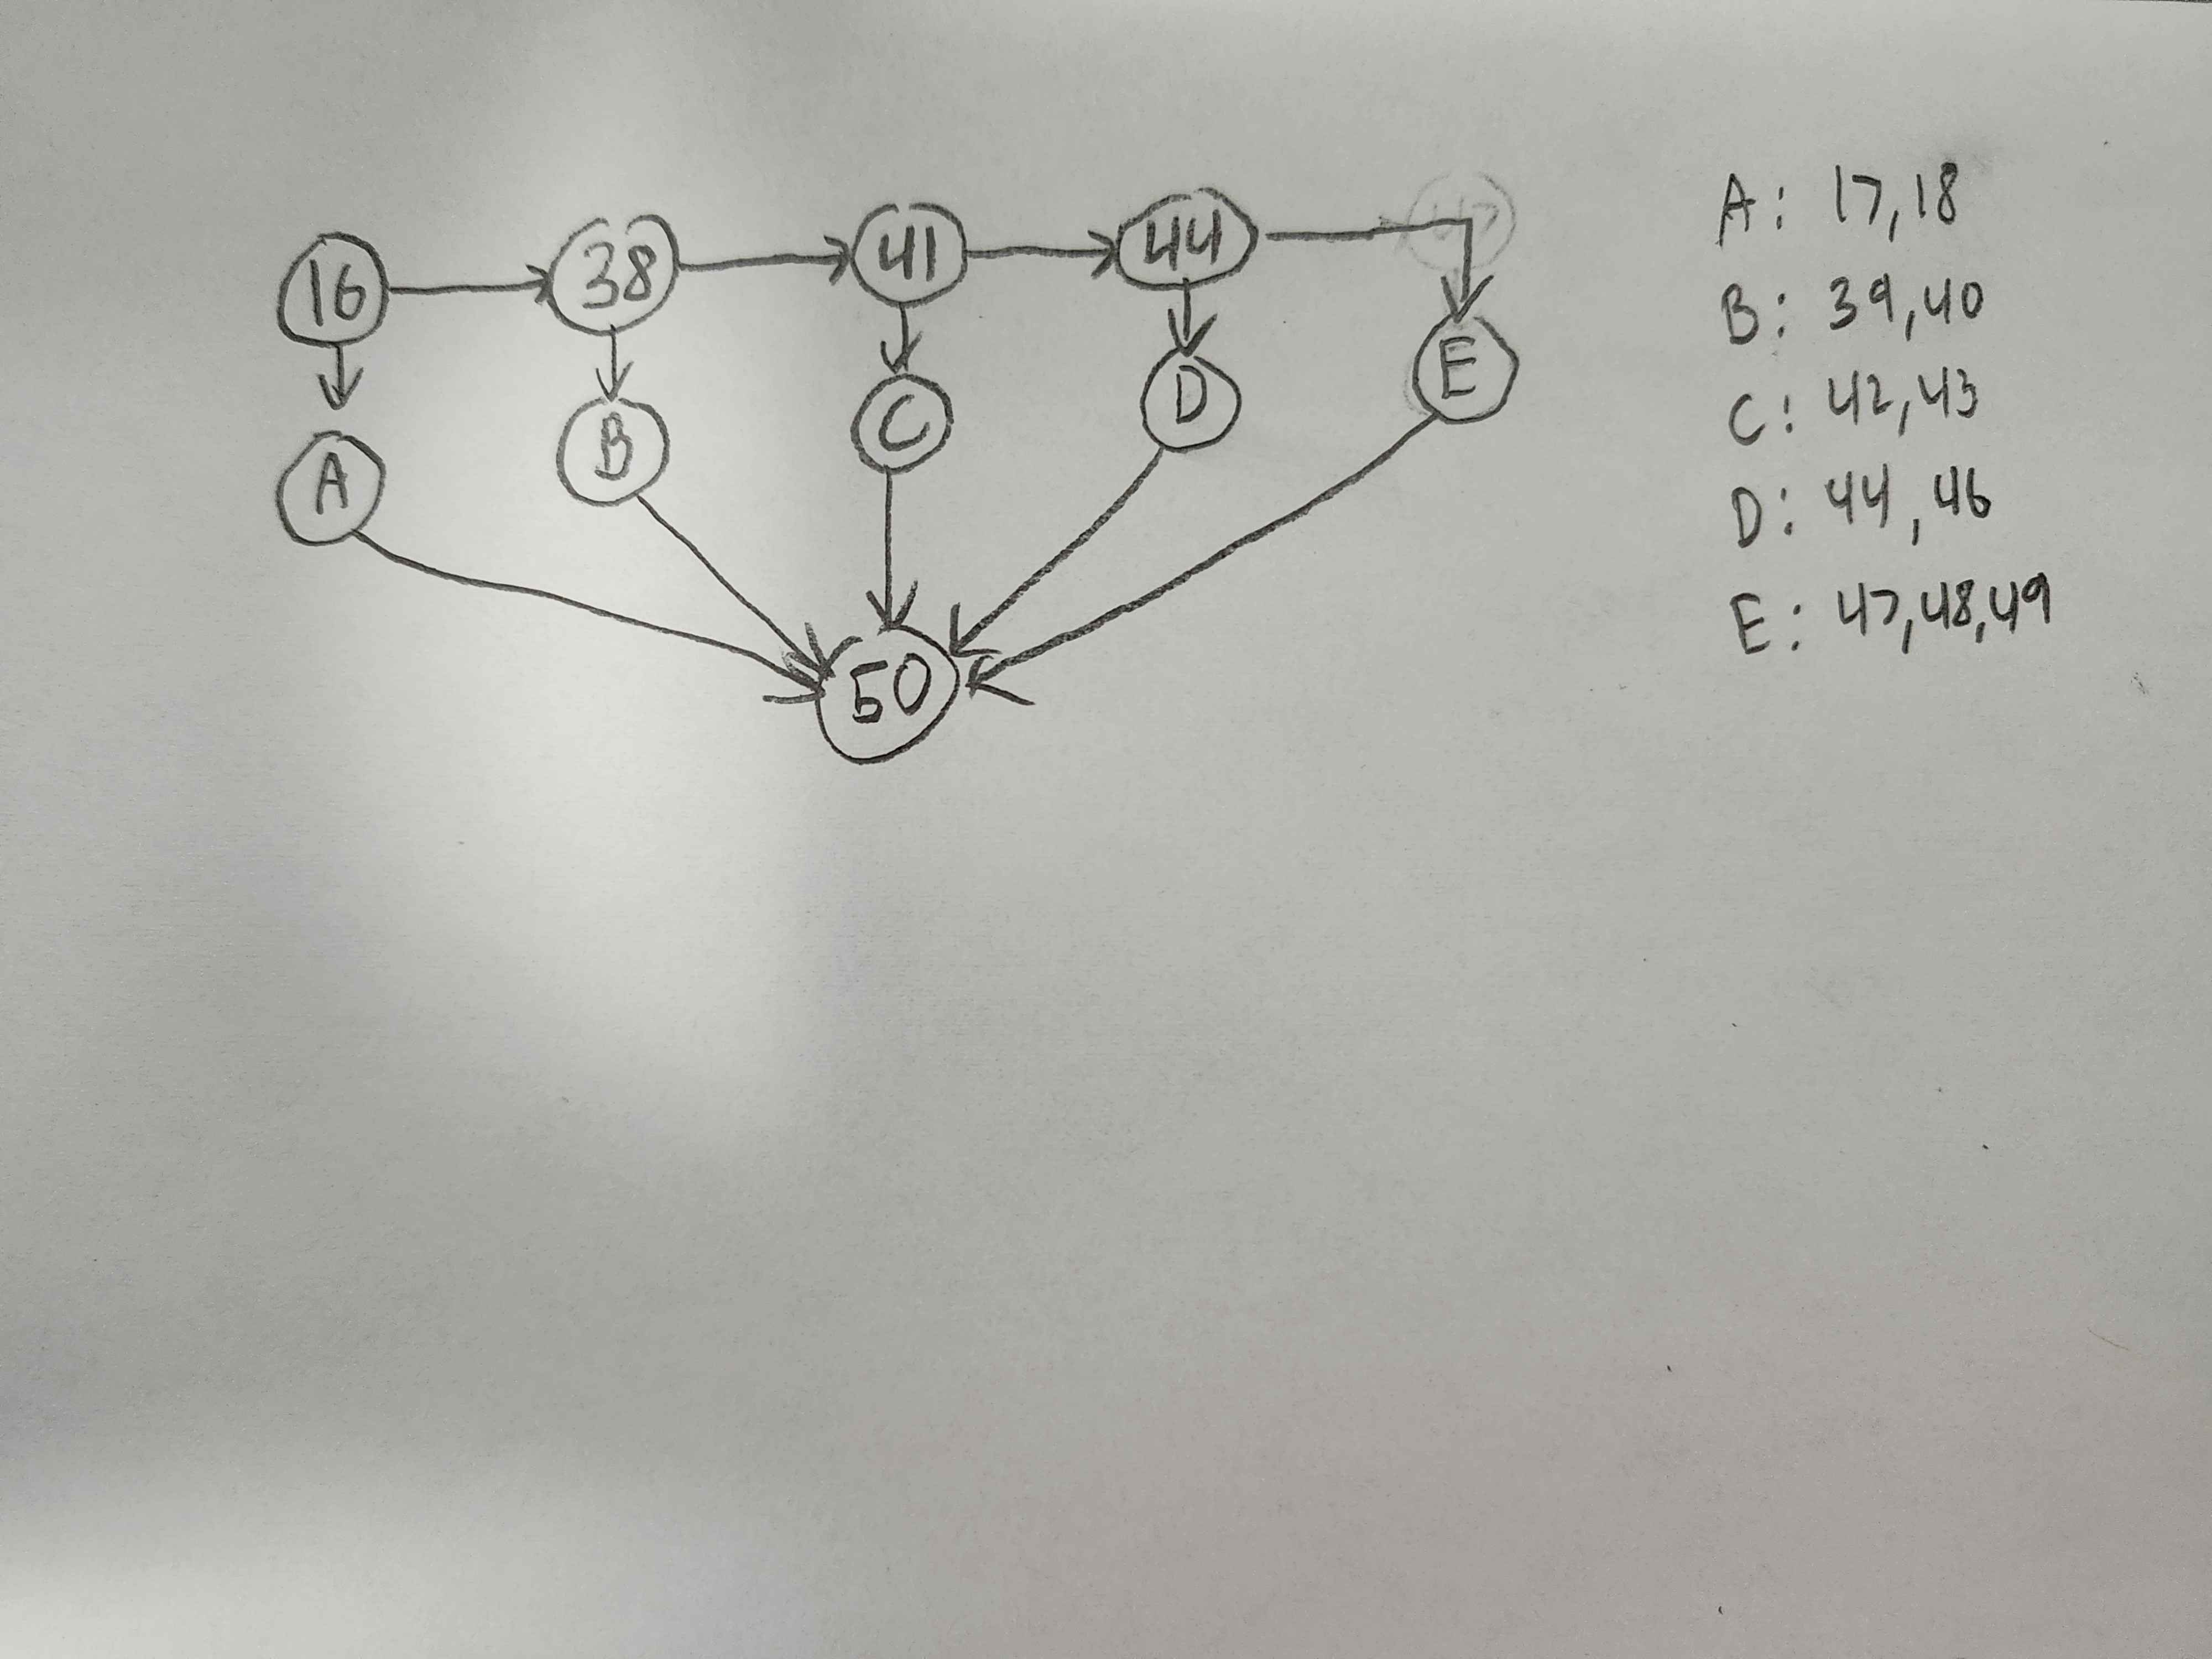 16
38
41
44
A
B
C
D
E
50
A: 17,18
B: 39,40
C: 42,43
D: 44,46
E: 47,48,49